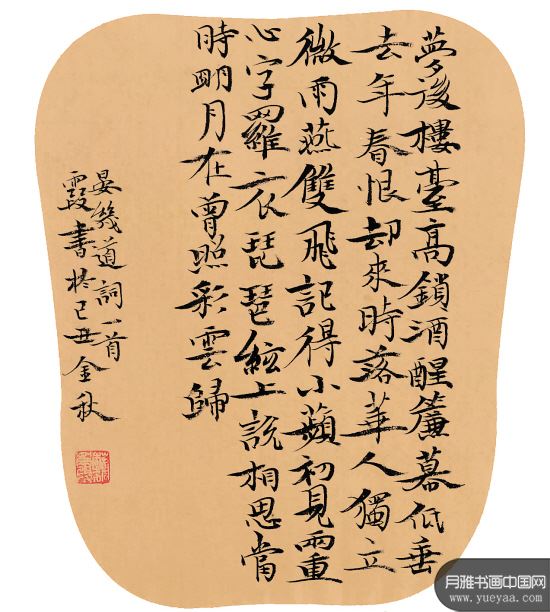 夢後樓臺高鎖酒醒簾幕低垂
去年春恨却來時落華人獨立
微雨燕雙飛記得小蘋初見兩重
心字羅衣琵琶絃上說相思當
時明月在曾照彩雲歸
晏幾道詞一首
霞書於己丑金秋
月雅书画中国网
www.yueyaa.com